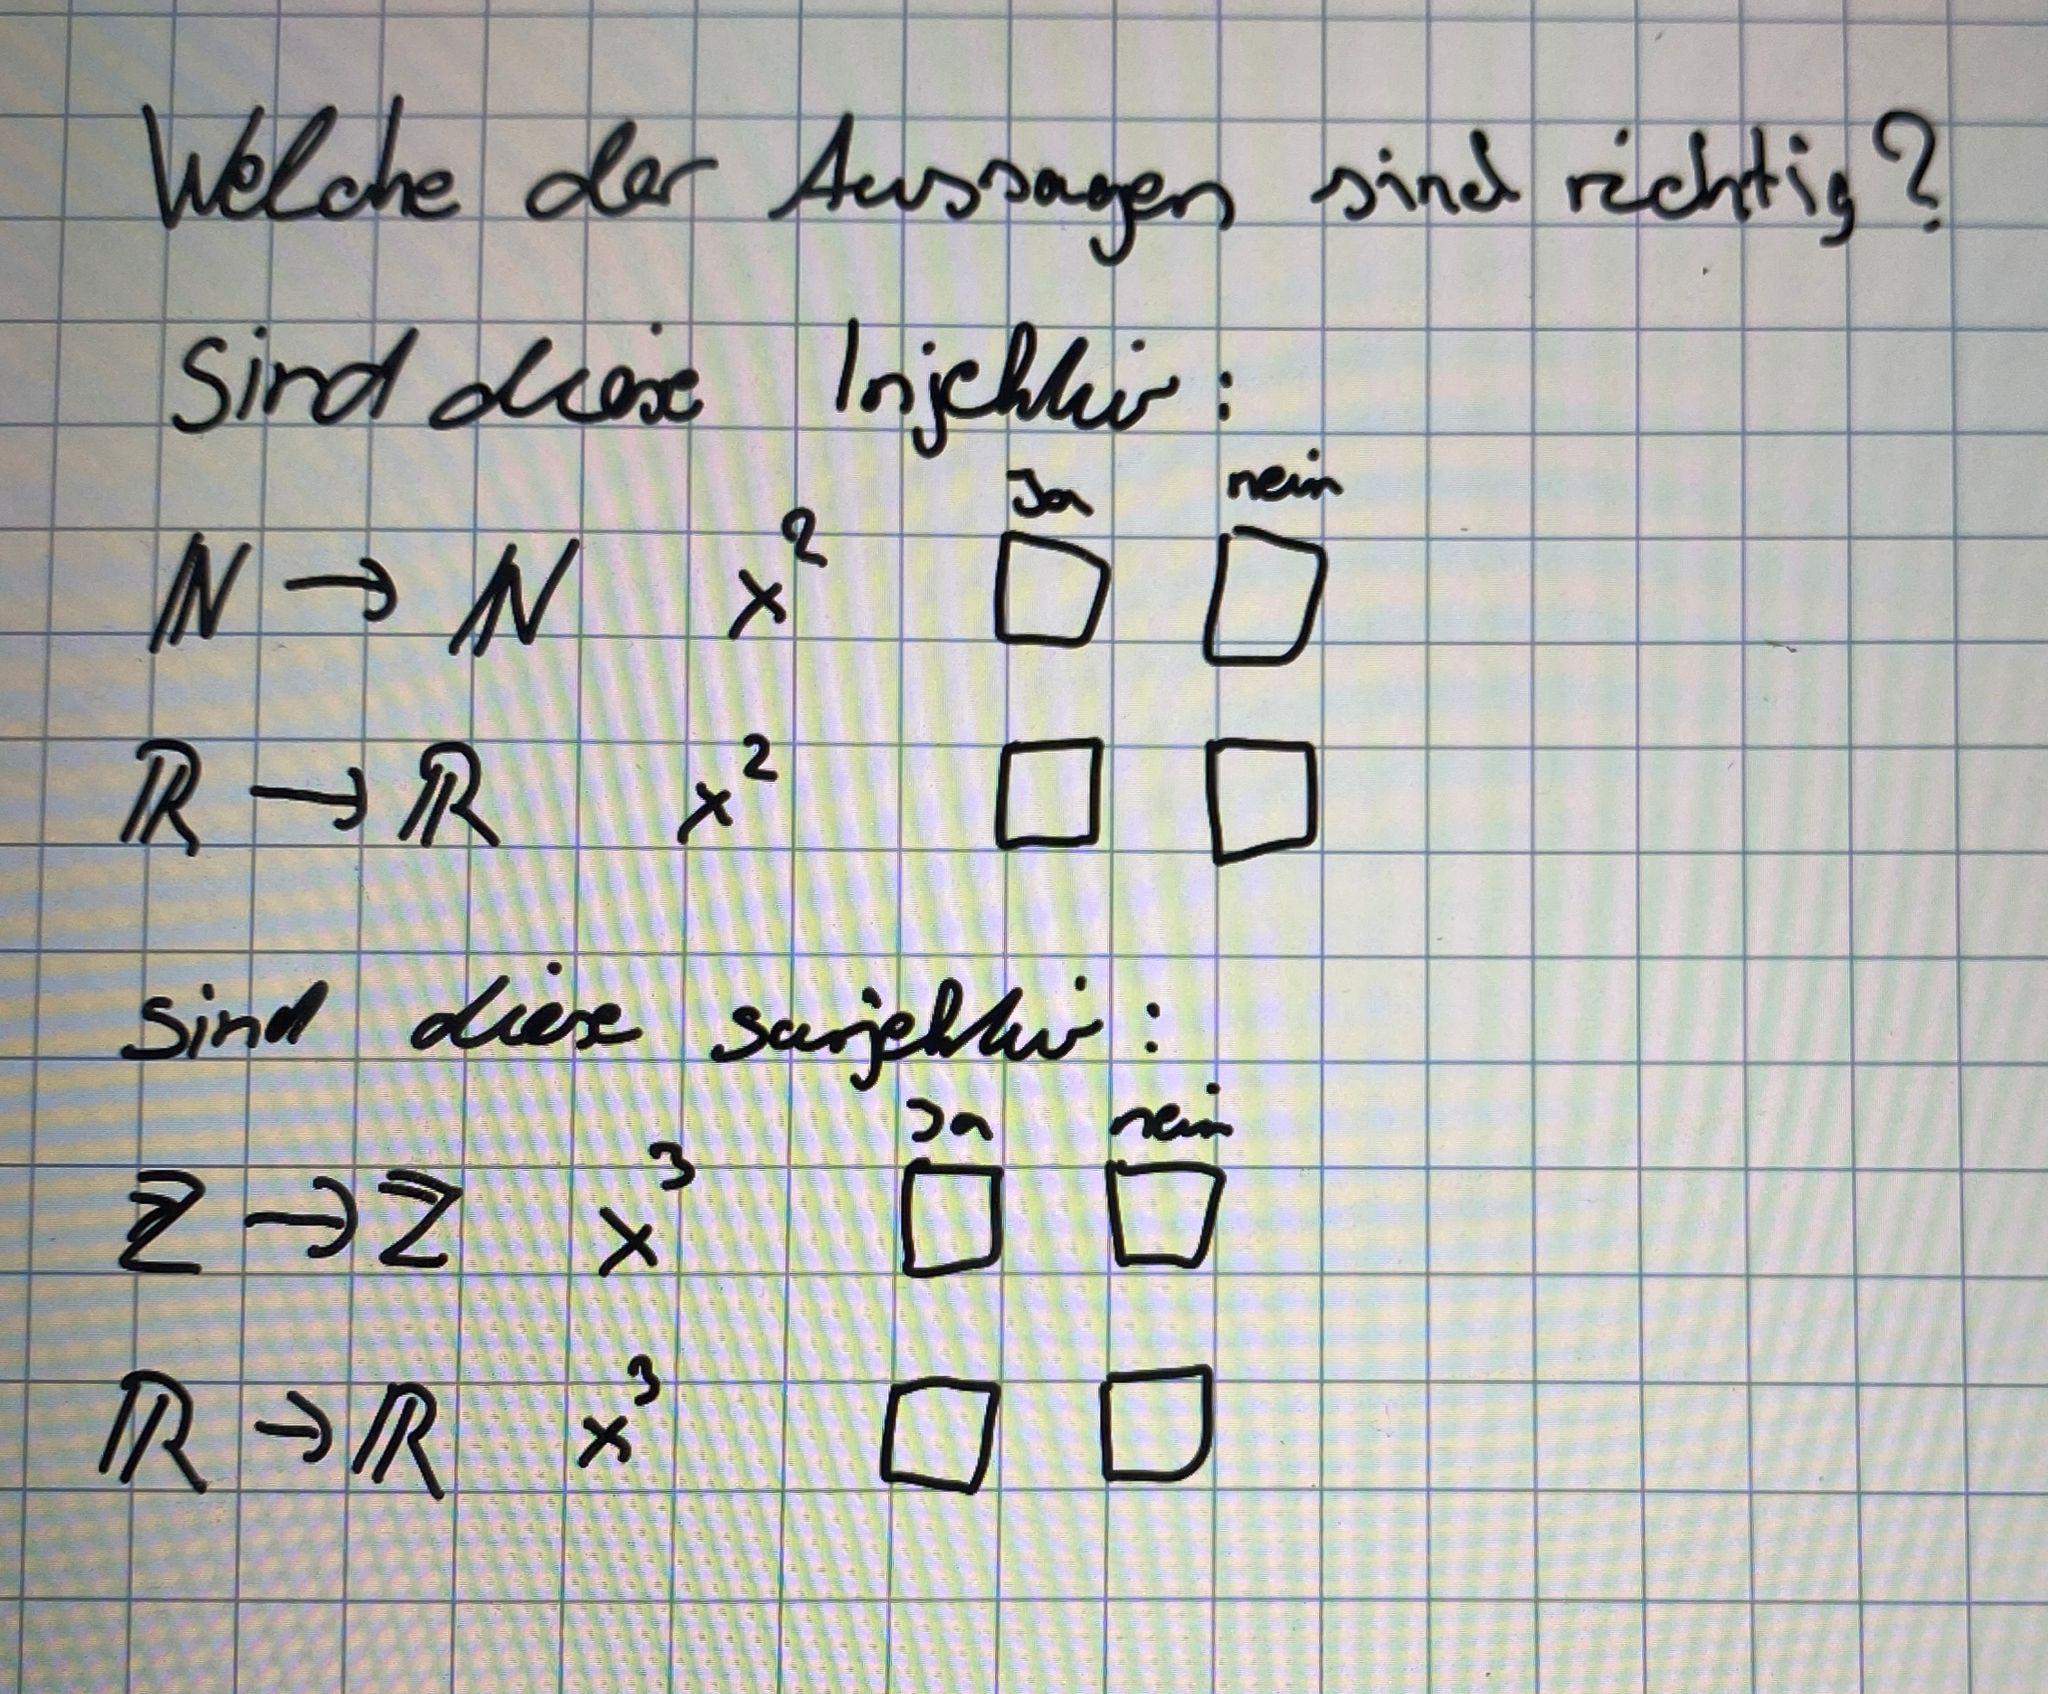 Welche der Aussagen sind richtig?
Sind diese Injektiv:
Ja nein
ℕ → ℕ x² ☐ ☐
ℝ → ℝ x² ☐ ☐
sind diese surjektiv:
Ja nein
ℤ → ℤ x³ ☐ ☐
ℝ → ℝ x³ ☐ ☐